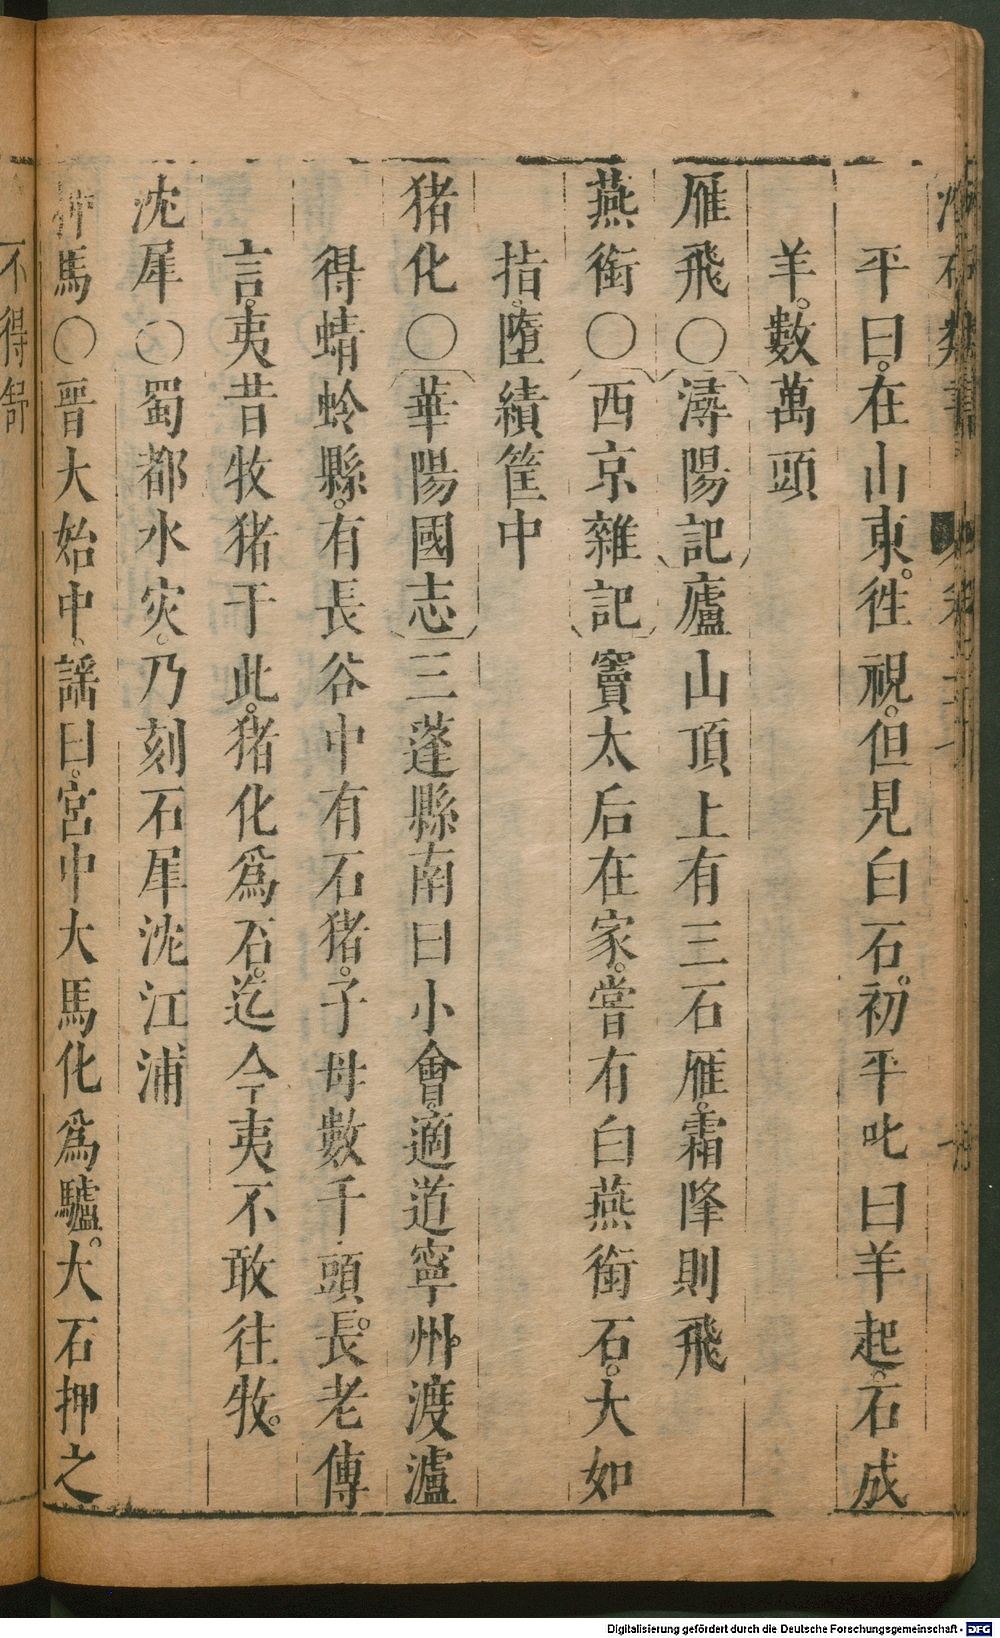 平曰。在山東。徃視。但見白石。初平叱曰羊起。石成
羊。數萬頭
雁飛〇潯陽記廬山頂上有三石雁。霜降則飛
燕銜〇西京雜記竇太后在家。嘗有白燕銜石。大如
指。墮績筐中
猪化〇華陽國志三蓬縣南曰小會。適道寧州。渡瀘
得蜻蛉縣。有長谷中有石猪。子母數千頭。長老傳
言。夷昔牧猪于此。猪化為石。迄今夷不敢往牧。
沈犀〇蜀都水灾。乃刻石犀沈江浦
押馬〇晋大始中。謡曰。宮中大馬化為驢。大石押之
不得舒
Digitalisierung gefördert durch die Deutsche Forschungsgemeinschaft - DFG